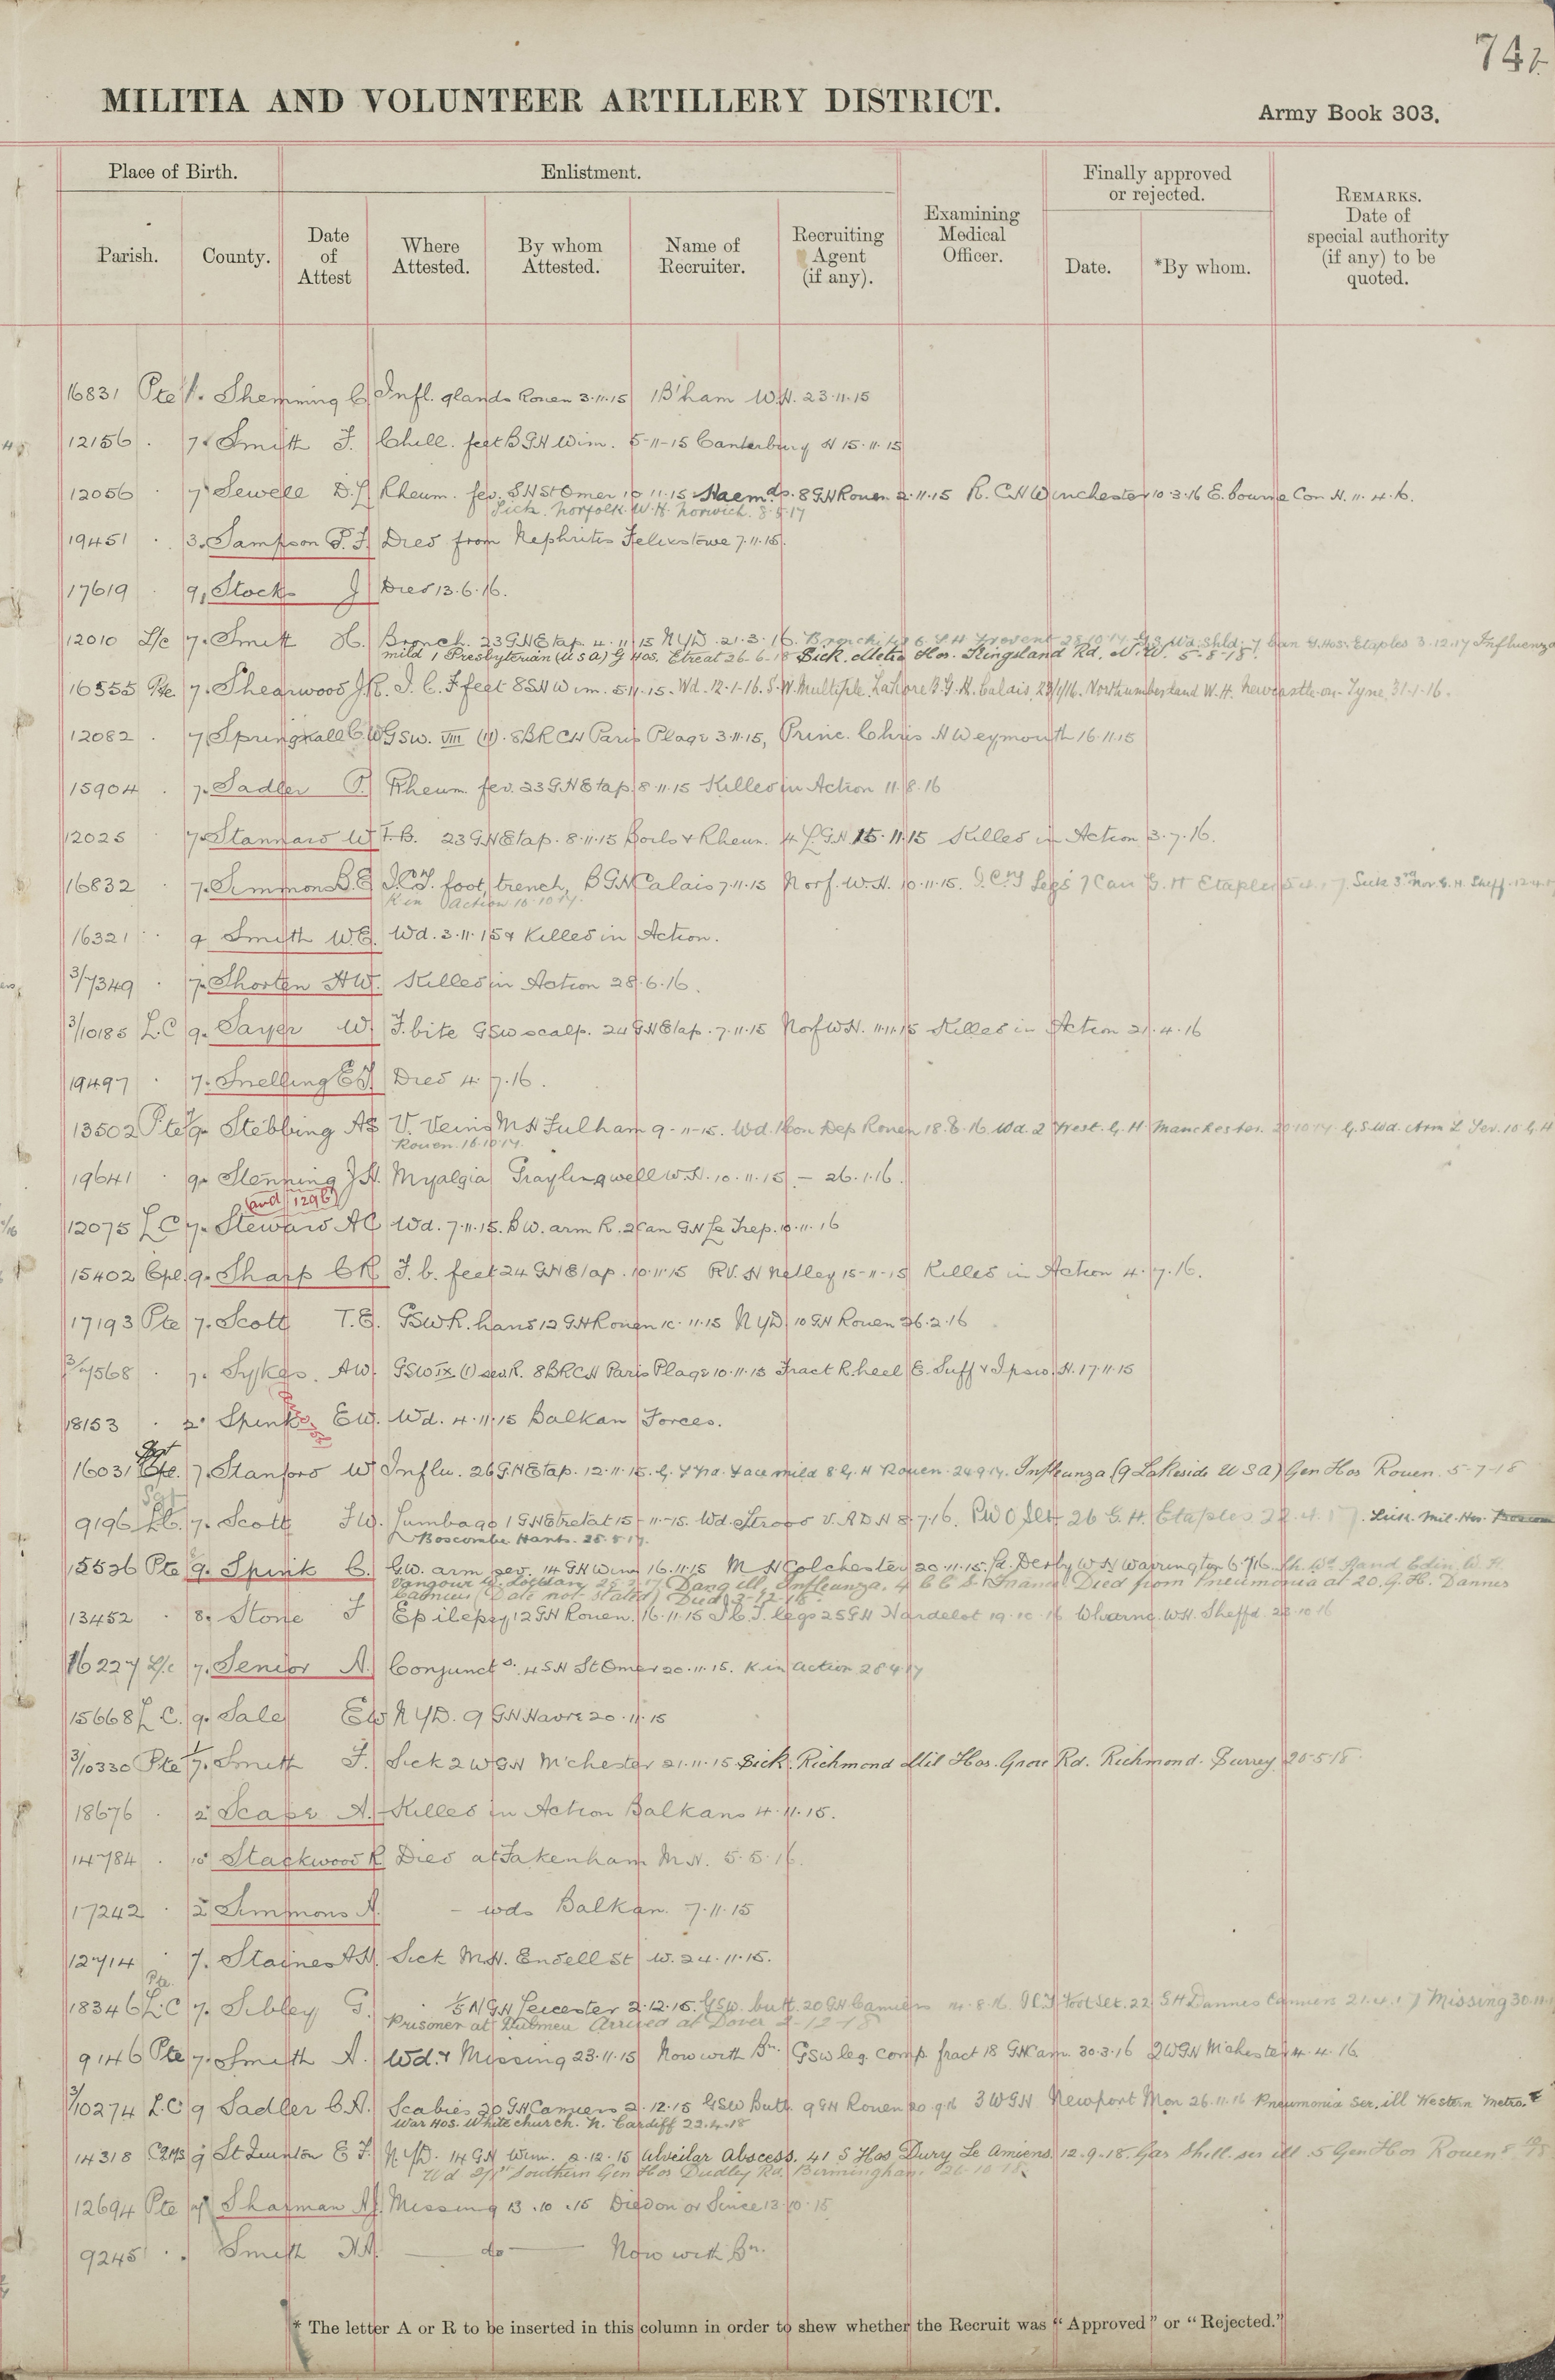 74b
MILITIA AND VOLUNTEER ARTILLERY DISTRICT.
Army Book 303.
Place of Birth.
Enlistment.
Finally approved or rejected.
Parish.
County.
Date of Attest
Where Attested.
By whom Attested.
Name of Recruiter.
Recruiting Agent (if any).
Examining Medical Officer.
Date.
*By whom.
REMARKS. Date of special authority (if any) to be quoted.
16831 Pte 1. Shemming C Infl. glands Rouen 3.11.15 1 B'ham W.H. 23.11.15
12156 . 7 Smith F. Chill. feet B G H Wim. 5-11-15 Canterbury H 15.11.15
12056 . 7 Sewell D.L Rheum. fev. S H St Omer 10 11.15 Haem ds. 8 G H Rouen 2.11.15 R. C H Winchester 10.3.16 E.bourne Con H. 11.4.16.
Sick. Norfolk W.H. Norwich. 8.5.17
19451 . 3. Sampson P.F. Died from Nephritis Felixstowe 7.11.15.
17619 . 9, Stocks J Died 13.6.16.
12010 L/c 7. Smith H. Bronch. 23 G.H Etap. 4.11.15 N Y D. 21.3.16. Bronchitis 6. S H Frevent 28.10.17. G S Wd. Shldr. 7 Can G. Hos. Etaples 3.12.17 Influenza
mild 1 Presbyterian (U S A) G Hos. Etreat 26-6-18 Sick. Metro Hos. Kingsland Rd. N.W. 5-8-18.
16555 Pte 7. Shearwood J.R. I. C. F feet 8 S H Wim. 5.11.15. Wd. 12.1.16. S.W. Multiple. Lahore B.G.H. Calais. 23/1/16. Northumberland W.H. Newcastle-on-Tyne 31.1.16.
12082 . 7 Springhall C W GSW. VIII (11). 8 B R C H Paris Plage 3.11.15, Princ. Chris H Weymouth 16.11.15
15904 . 7. Sadler P. Rheum. fev. 23 G H Etap. 8.11.15 Killed in Action 11.8.16
12025 7 Stannard W F.B. 23 G H Etap. 8.11.15 Boils & Rheum. 4 L G H 15.11.15 Killed in Action 3.7.16.
16832 . 7. Simmons B.E I.C.T. foot, trench, B G H Calais 7.11.15 Norf. W.H. 10.11.15. I.C.T Legs 7 Can G. H Etaples 5.4.17. Sick 3rd Nor G. H. Sheff. 12.4.17
K in Action 10.10.17.
16321 . 9 Smith W.E. Wd. 3.11.15 & Killed in Action.
3/7349 . 7. Shorten H W. Killed in Action 28.6.16.
3/10185 L.C 9. Sayer W F.bite GSW scalp. 24 G H Etap. 7.11.15 Norf W.H. 11.11.15 Killed in Action 21.4.16
19497 . 7. Snelling E J. Died 4.7.16.
13502 Pte 9. Stebbing A S V. Veins M H Fulham 9-11-15. Wd. 1 Con Dep Rouen 18.8.16 Wd. 2 West. G. H Manchester. 20.10.17. G.S.Wd. Arm L Sev. 10 G.H
Rouen 16.10.17.
19641 . 9. Stenning J H. Myalgia Graylingwell W.H. 10.11.15 - 26.1.16.
(and 1296)
12075 L C 7. Steward A C Wd. 7.11.15. B W. arm R. 2 Can G H Le Trep. 10.11.16
15402 Cpl. 9. Sharp C R F. b. feet 24 G H Etap. 10.11.15 RV. H Netley 15-11-15 Killed in Action 4.7.16.
17193 Pte 7. Scott T.E. GSW R. hand 12 G H Rouen 10.11.15 N Y D 10 G H Rouen 26.2.16
3/7568 . 7. Sykes. A W. GSW IX (1) sev R. 8 B R C H Paris Plage 10.11.15 Fract R. heel E. Suff & Ipsw. H. 17.11.15
18153 . 2. Spinks E W. Wd. 4.11.15 Balkan Forces.
Sgt
16031 Cpl. 7. Stanford W Influ. 26 G.H Etap. 12.11.15. G. S Wd. Face mild 8 G. H Rouen 24.9.17. Influenza (9 Lakeside U S A) Gen Hos Rouen. 5-7-18
Sgt
9196 L/C. 7. Scott F W. Lumbago 1 G H Etretat 15-11-15. Wd. Strood V. A D H 8.7.16. P U O Slt. 26 G. H. Etaples 22.4.17. Sick. Mil. Hos.
Boscombe Hants. 25.5.17.
15526 Pte 9. Spink C. G.W. arm sev. 14 G H Wim 16.11.15 M H Colchester 20.11.15. Ld. Derby W H Warrington 6.7.16. Sh. Wd Hand Edin. W. H.
Died from Pneumonia at 20. G. H. Dannes
Camiers (Date not Stated) Died 3-12-18.
13452 . 8. Stone F Epilepsy 12 G H Rouen. 16.11.15 I.C.T. legs 25 G H Hardelot 19.10.16 Wharnc. W.H. Sheffd. 23.10.16
16227 L/c 7. Senior A. Conjuncts. 4 S H St Omer 20.11.15. K in action 28 4 17
15668 L C. 9. Sale E W N Y D. 9 G H Havre 20.11.15
3/10330 Pte 7. Smith F. Sick 2 W G H M'chester 21.11.15 Sick. Richmond Mil Hos. Grove Rd. Richmond. Surrey. 20.5.18
18676 . 2 Scase A. Killed in Action Balkans 4.11.15.
14784 . 10 Stackwood R Died at Fakenham M H. 5.5.16.
17242 . 2 Simmons A. - wds Balkan. 7.11.15
12714 . 7. Staines A H. Sick M H. Endell St W. 24.11.15.
Pte.
18346 L.C 7. Sibley G. 1/5 N G H Leicester 2.12.15. GSW. butt. 20 G H Camiers 14.8.16. I C T Foot Slt. 22 G H Dannes Camiers 21.4.17 Missing 30.11.17
Prisoner at Dulmen Arrived at Dover 2-12-18
9146 Pte 7. Smith A. Wd. & Missing 23.11.15 Now with Bn. GSW leg. Comp. fract 18 G H Cam. 30.3.16 2 W G H M'chester 4.4.16
3/10274 L.C 9 Sadler C.A. Scabies 20 G H Camiers 2.12.15 GSW Butt. 9 G H Rouen 20.9.16 3 W G H Newport Mon 26.11.16 Pneumonia Ser. ill Western Metro.
War Hos. Whitechurch. N. Cardiff 22.4.18
14318 CQMS 9 St Quinton E F. N.Y.D. 14 G H Wim. 2.12.15 Alveilar Abscess. 41 S Hos Dury Le Amiens. 12.9.18. Gas Shell. ser ill. 5 Gen Hos Rouen
Wd 2/1 Southern Gen Hos Dudley Rd. Birmingham. 26.10.18
12694 Pte 7 Sharman A J. Missing 13.10.15 Died on or Since 13.10.15
9245 . . Smith H A. do Now with Bn.
* The letter A or R to be inserted in this column in order to shew whether the Recruit was "Approved" or "Rejected."